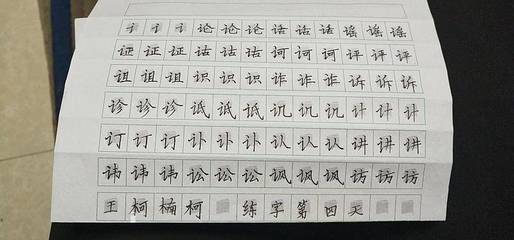 讠讠讠论论论话话话谣谣谣
证证证诂诂诂诃诃诃评评评
诅诅诅识识识诈诈诈诉诉诉
诊诊诊诋诋诋讥讥讥计计计
订订订讣讣讣认认认讲讲讲
讳讳讳讼讼讼讽讽讽访访访
王柯楠柯 练字第四天